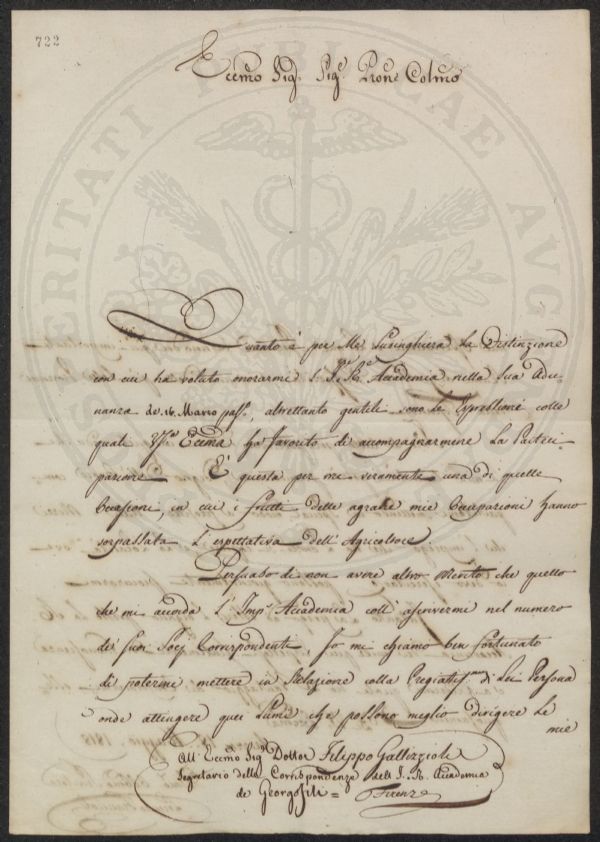 722
Eccmo Sigr. Sigr. Prone Colmo
Quanto è per Me Lusinghiera La Distinzione
con cui ha voluto onorarmi l' I. R. Accademia nella Sua Adu-
nanza de 16. Marzo pass., altrettanto gentili sono le Espressioni colle
quali Vra Eccma ha favorito di accompagnarmene La Parteci-
pazione. È questa per me veramente una di quelle
Occasioni, in cui i frutti delle agrarie mie Occupazioni hanno
sorpassata l'espettativa dell'Agricoltore.
Persuaso di non avere altro Merito che quello
che mi accorda l' Imp. Accademia coll' ascrivermi nel numero
de' suoi Socj Corrispondenti, Io mi chiamo ben fortunato
di potermi mettere in Relazione colla Pregiatissma di Lei Persona
onde attingere quei Lumi che possono meglio dirigere Le
mie
All' Eccmo Sigr Dottor Filippo Gallizzioli
Segretario della Corrispondenza dell I. R. Accademia
de Georgofili = Firenze
VERITATI PUBLICAE AUG